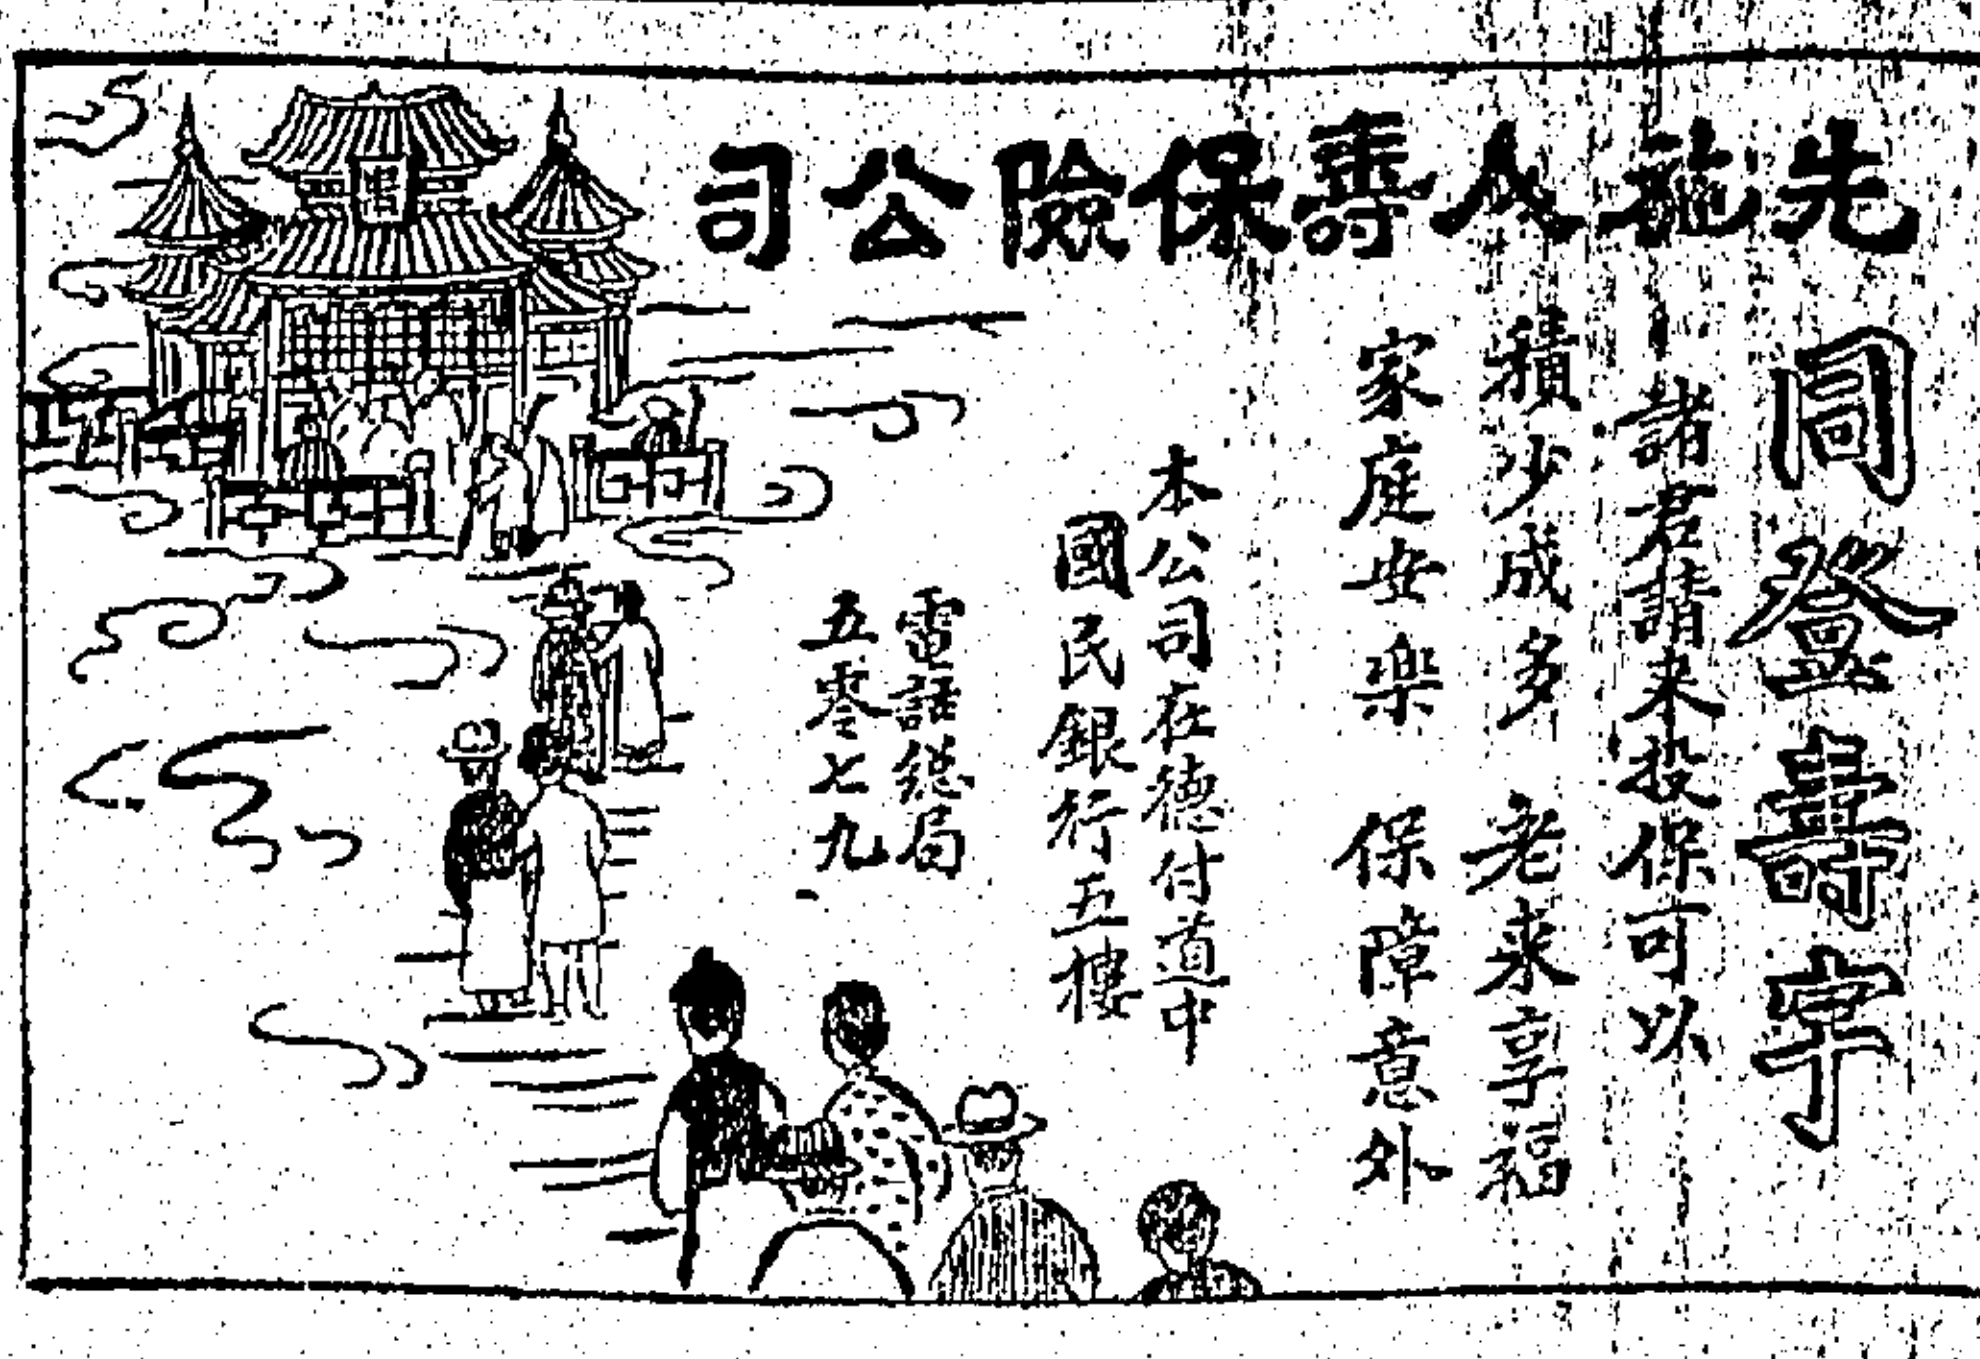 先施人壽保險公司
同登壽宇
諸君請来投保可以
積少成多 老来享福
家庭安楽 保障意外
本公司在德付道中
國民銀行五樓
電話総局
五零七九